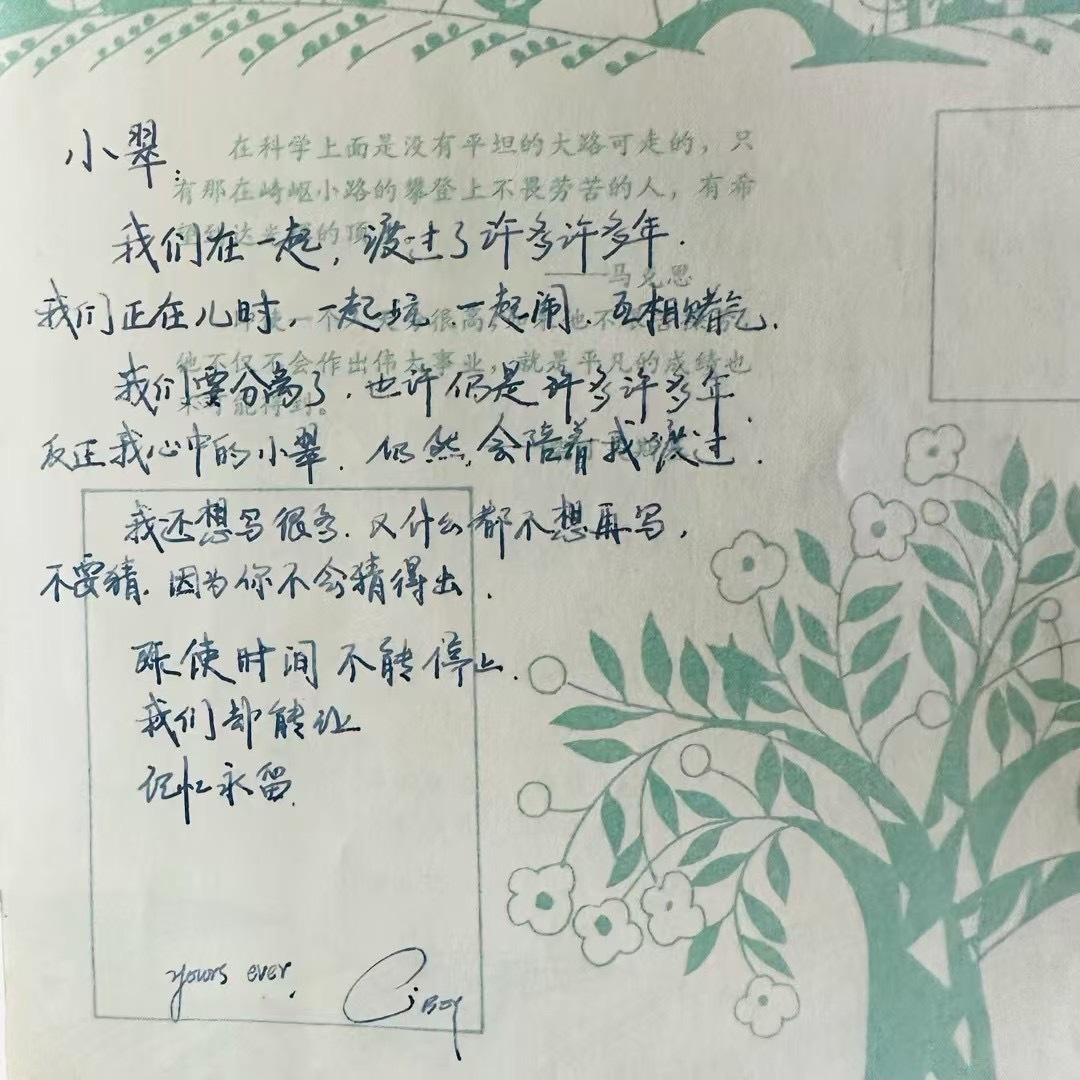 小翠:
在科学上面是没有平坦的大路可走的，只
有那在崎岖小路的攀登上不畏劳苦的人，有希
到达 的顶
我们在一起，渡过了许多许多年.
——马克思
我们正在儿时，一起玩、一起闹、互相赌气.
使一 很高， 他不
他不仅不会作出伟大事业，就是平凡的成绩也
我们要分离了.也许仍是许多许多年.
不可能得到。
反正我心中的小翠.仍然会陪着我渡过.
我还想写很多.又什么都不想再写，
不要猜.因为你不会猜得出.
既使时间不能停止.
我们却能让
记忆永留.
yours ever.